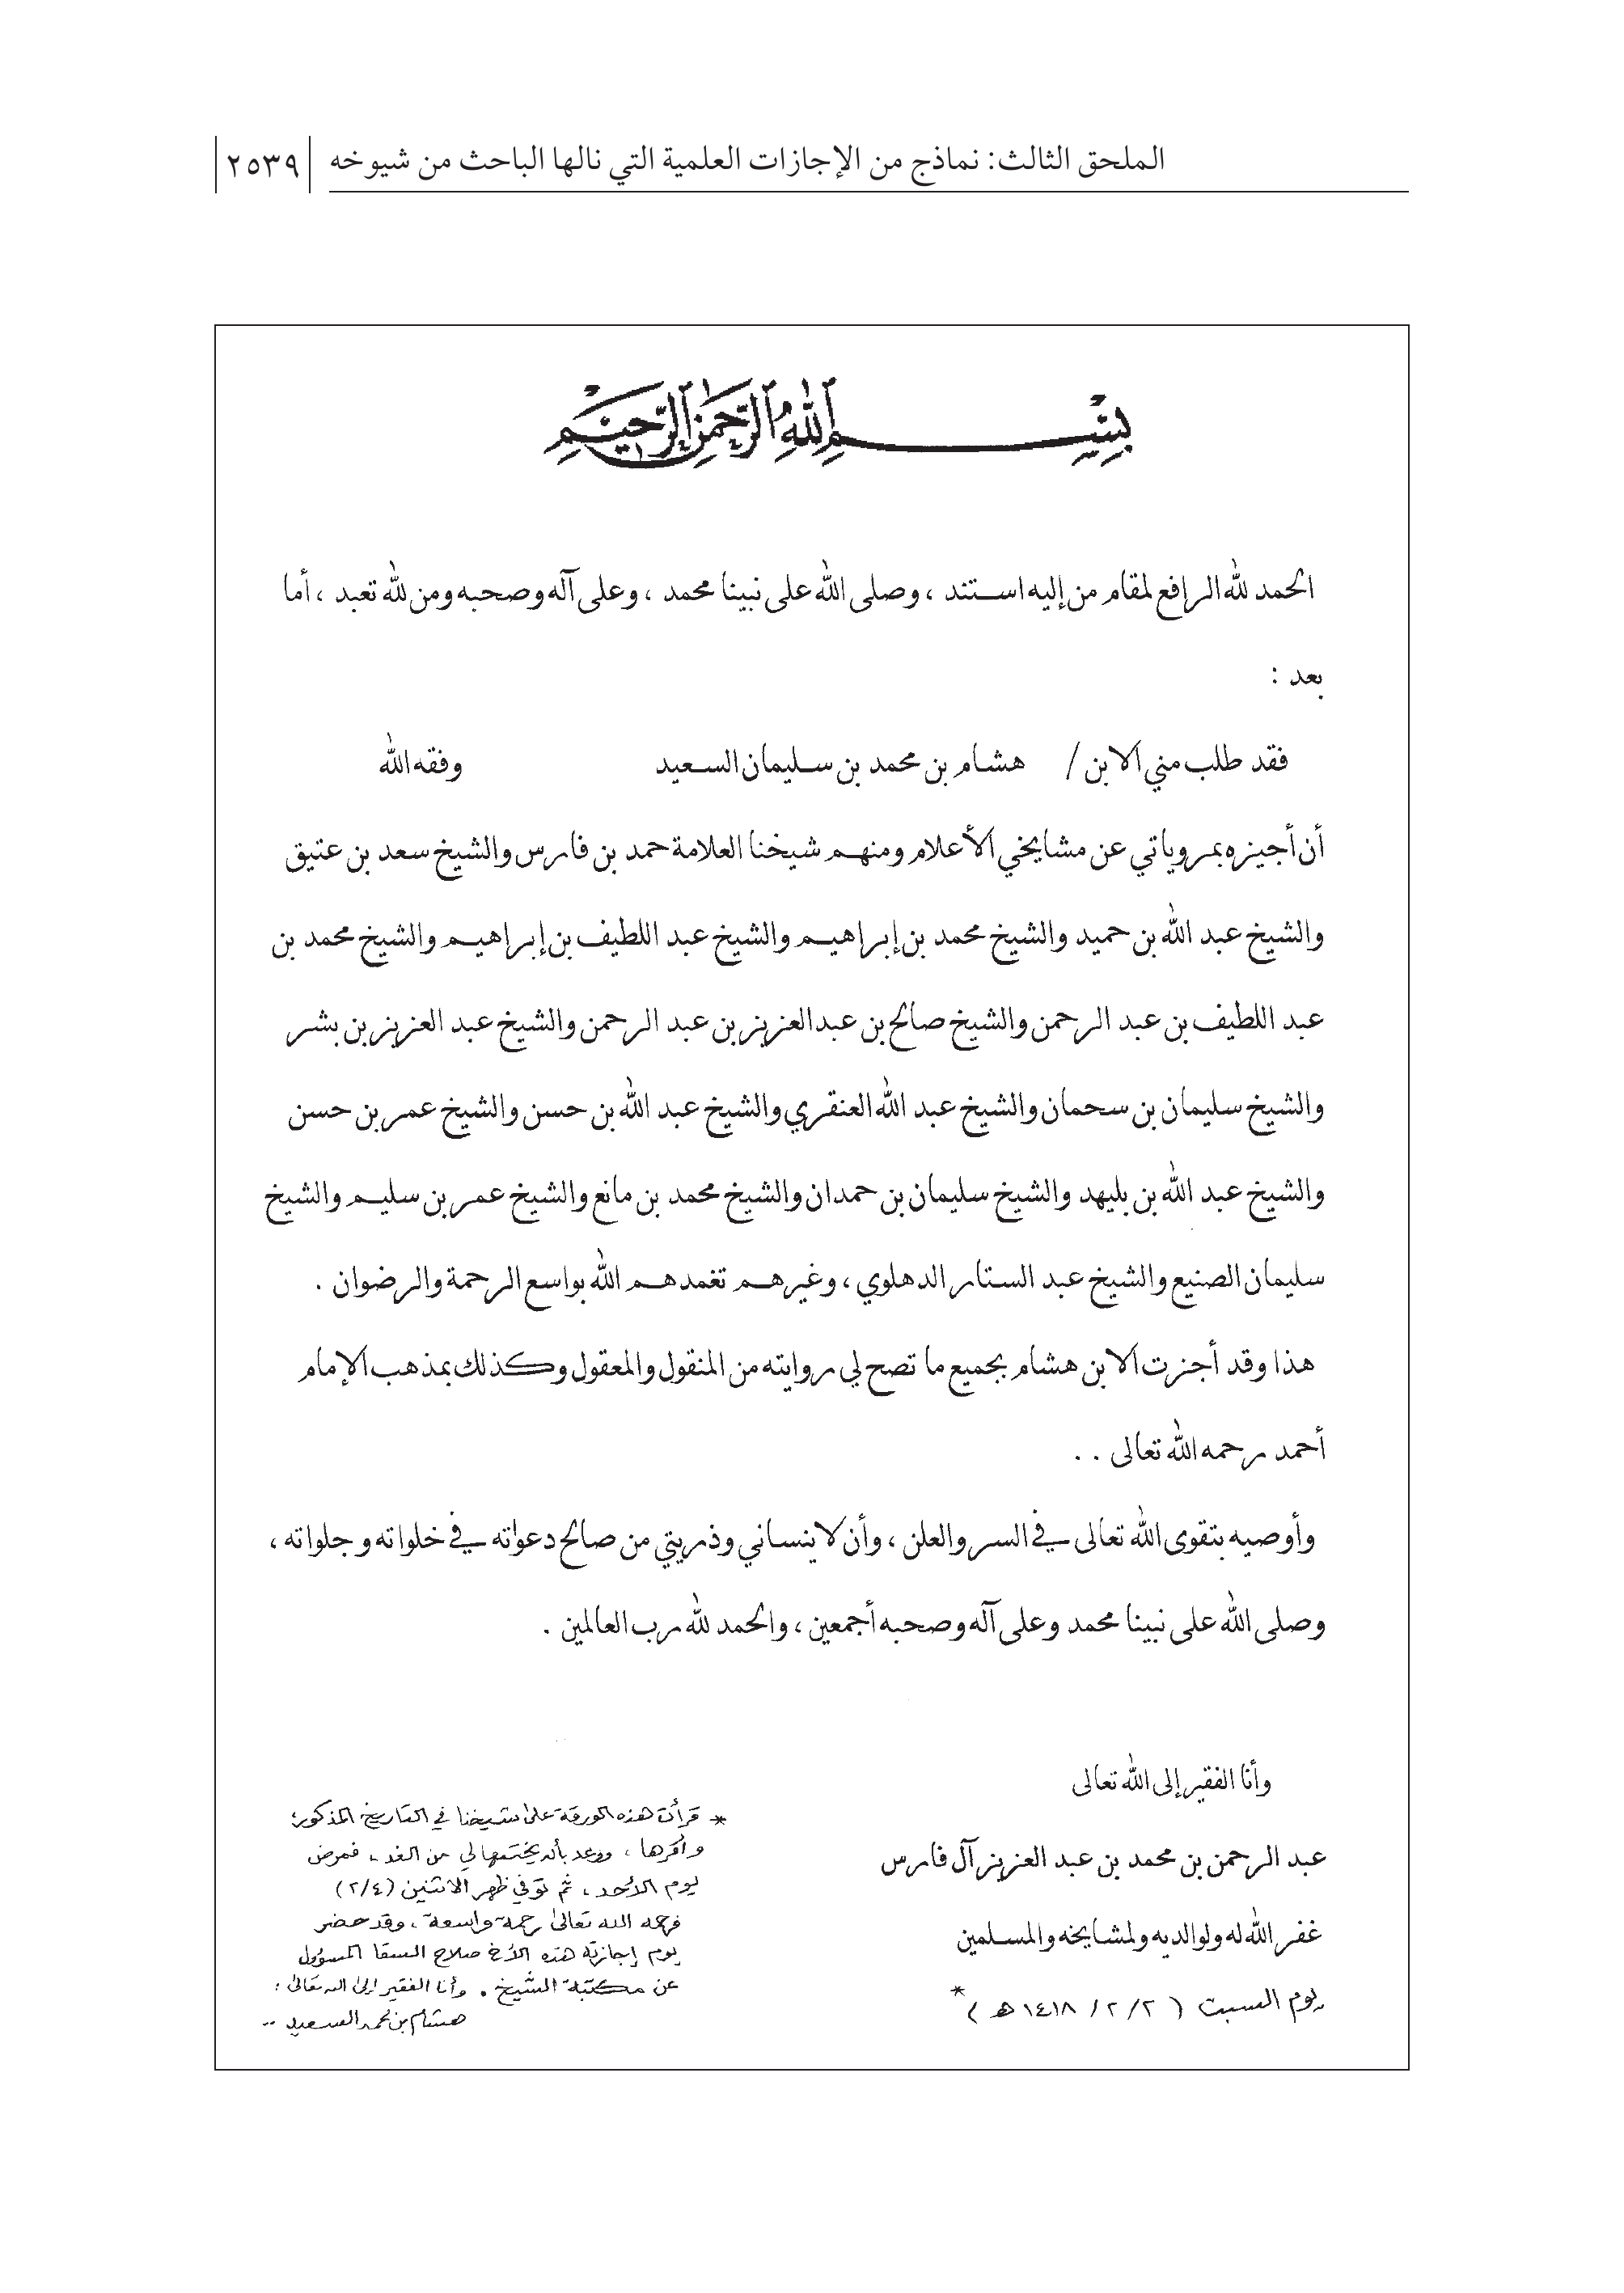 الملحق الثالث: نماذج من الإجازات العلمية التي نالها الباحث من شيوخه
٢٥٣٩
بسم الله الرحمن الرحيم
الحمد لله الرافع لمقام من إليه استند ، وصلى الله على نبينا محمد ، وعلى آله وصحبه ومن لله تعبد ، أما
بعد :
فقد طلب مني الابن / هشام بن محمد بن سليمان السعيد وفقه الله
أن أجيزه بمروياتي عن مشايخي الأعلام ومنهم شيخنا العلامة حمد بن فارس والشيخ سعد بن عتيق
والشيخ عبد الله بن حميد والشيخ محمد بن إبراهيم والشيخ عبد اللطيف بن إبراهيم والشيخ محمد بن
عبد اللطيف بن عبد الرحمن والشيخ صالح بن عبدالعزيز بن عبد الرحمن والشيخ عبد العزيز بن بشر
والشيخ سليمان بن سحمان والشيخ عبد الله العنقري والشيخ عبد الله بن حسن والشيخ عمر بن حسن
والشيخ عبد الله بن بليهد والشيخ سليمان بن حمدان والشيخ محمد بن مانع والشيخ عمر بن سليم والشيخ
سليمان الصنيع والشيخ عبد الستار الدهلوي ، وغيرهم تغمدهم الله بواسع الرحمة والرضوان .
هذا وقد أجزت الابن هشام بجميع ما تصح لي روايته من المنقول والمعقول وكذلك بمذهب الإمام
أحمد رحمه الله تعالى . .
وأوصيه بتقوى الله تعالى في السر والعلن ، وأن لا ينساني وذريتي من صالح دعواته في خلواته و جلواته ،
وصلى الله على نبينا محمد وعلى آله وصحبه أجمعين ، والحمد لله رب العالمين .
وأنا الفقير إلى الله تعالى
عبد الرحمن بن محمد بن عبد العزيز آل فارس
غفر الله له ولوالديه ولمشايخه والمسلمين
يوم السبت ( ٢ / ٢ / ١٤١٨ هـ ) *
* قرأت هذه الورقة على شيخنا في التاريخ المذكور،
وأقرها ، ووعد بأن يختمها لي من الغد ، فمرض
يوم الأحد ، ثم توفي ظهر الاثنين (٢/٤)
فرحمه الله تعالى رحمة واسعة ، وقد حضر
يوم إجازته هذه الأخ صلاح السقا المسؤول
عن مكتبة الشيخ . وأنا الفقير إلى الله تعالى :
هشام بن محمد السعيد ..